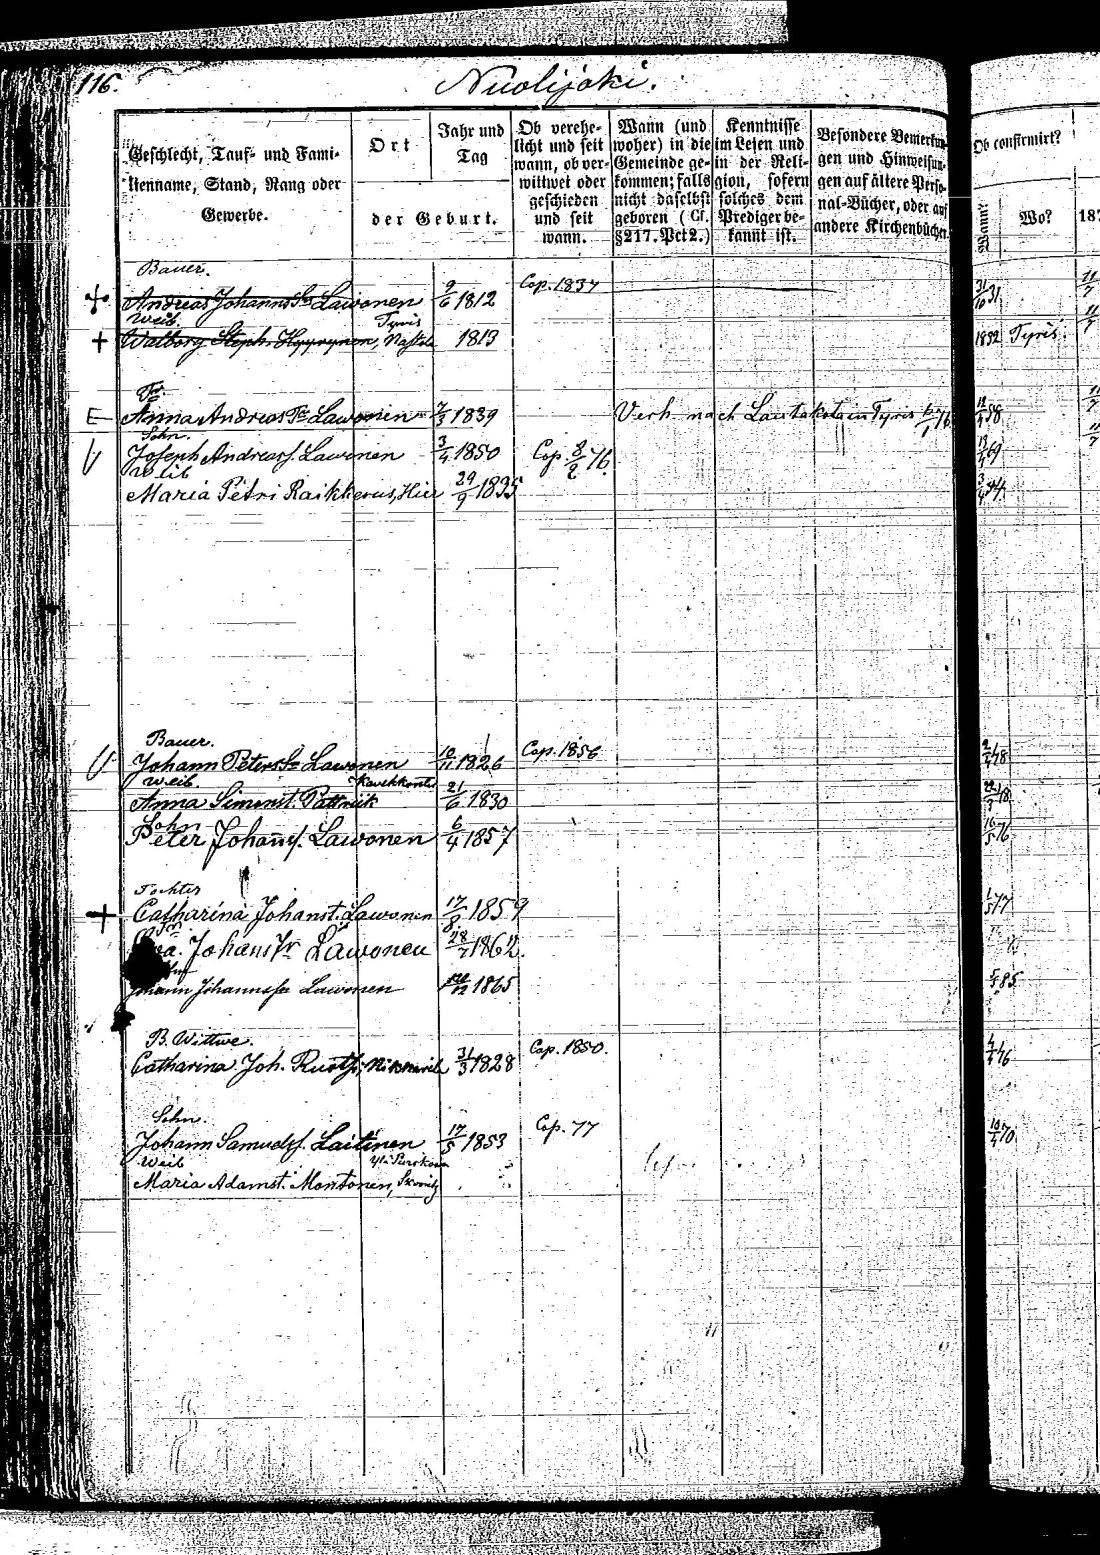 116.
Nuolijoki.
Geschlecht, Tauf- und Fami-
lienname, Stand, Rang oder
Gewerbe.
Ort
Jahr und
Tag
der Geburt.
Ob verehe-
licht und seit
wann, ob ver-
wittwet oder
geschieden
und seit
wann.
Wann (und
woher) in die
Gemeinde ge-
kommen; falls
nicht daselbst
geboren (Cf.
§ 217. Pct 2.)
Kenntnisse
im Lesen und
in der Reli-
gion, sofern
solches dem
Prediger be-
kannt ist.
Besondere Bemerkun-
gen und Hinweisun-
gen auf ältere Perso-
nal-Bücher, oder auf
andere Kirchenbücher.
Ob confirmirt?
Wann?
Wo?
187
Bauer.
Andreas Johanns Sn Lawonen 9/6 1812 Cap. 1837 31/10 31 11/7
Weib. Tyris
Walborg Steph. Hyyrynen, 1813 1832 Tyris 11/7
Tr
Anna Andreas Tr Lawonen 7/3 1839 Verh. nach in Tyris 58
Sohn.
Joseph Andreas s. Lawonen 3/4 1850 Cop. 8/2 76. 69
Weib
Maria Petri Raikkerus, Hier 29/9 1835
Bauer.
Johann Peters Sn Lawonen 10/11 1826 Cop. 1856 48
Weib.
Anna Simonst. 21/6 1830
Sohn
Peter Johans. Lawonen 6/4 1857 76
Tochter
Catharina Johanst. Lawonen 17/8 1859 77
Johans Tr Lawonen 28/7 1862.
Johann Johannes Sn Lawonen 1865 5/5 85
B. Wittwe.
Catharina Joh. 31/3 1828 Cop. 1850. 46
Sohn.
Johann Samuels s. Laitinen 17/5 1853 Cop. 77 70
Weib
Maria Adamst. Montonen,